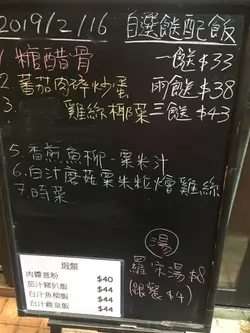 2019/2/16 自選餸配飯
1.糖醋骨 一餸$33
2.蕃茄肉碎炒蛋 兩餸$38
3. 雞絲椰菜 三餸$43
5.香煎魚柳-粟米汁
6.白汁蘑菇粟米粒燴雞絲
7.時菜
湯
羅宋湯$8
(跟餐$4)
焗飯
肉醬意粉 $40
茄汁豬扒飯 $44
白汁魚柳飯 $44
白汁雞皇飯 $44